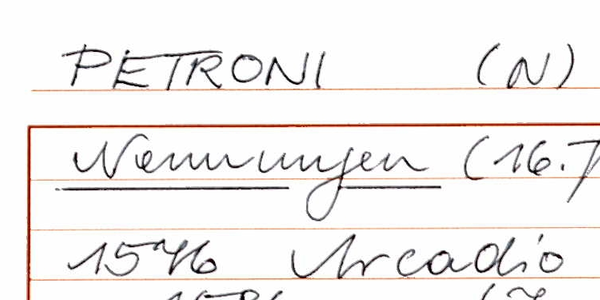 PETRONI (N)
Nennungen (16.7
1546 Arcadio